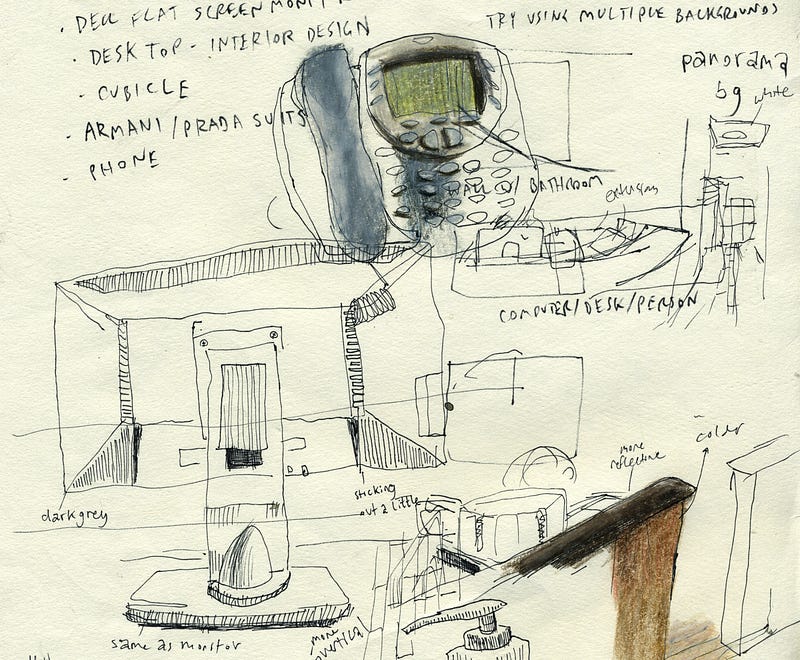 · DELL FLAT SCREEN MONIT
TRY USING MULTIPLE BACKGROUNDS
· DESKTOP - INTERIOR DESIGN
- CUBICLE
panorama
bg
white
- ARMANI / PRADA SUITS
- PHONE
WALL W/ BATHROOM
COMPUTER/DESK/PERSON
color
more
reflective
sticking
out a little
darkgrey
same as monitor
more
vertical